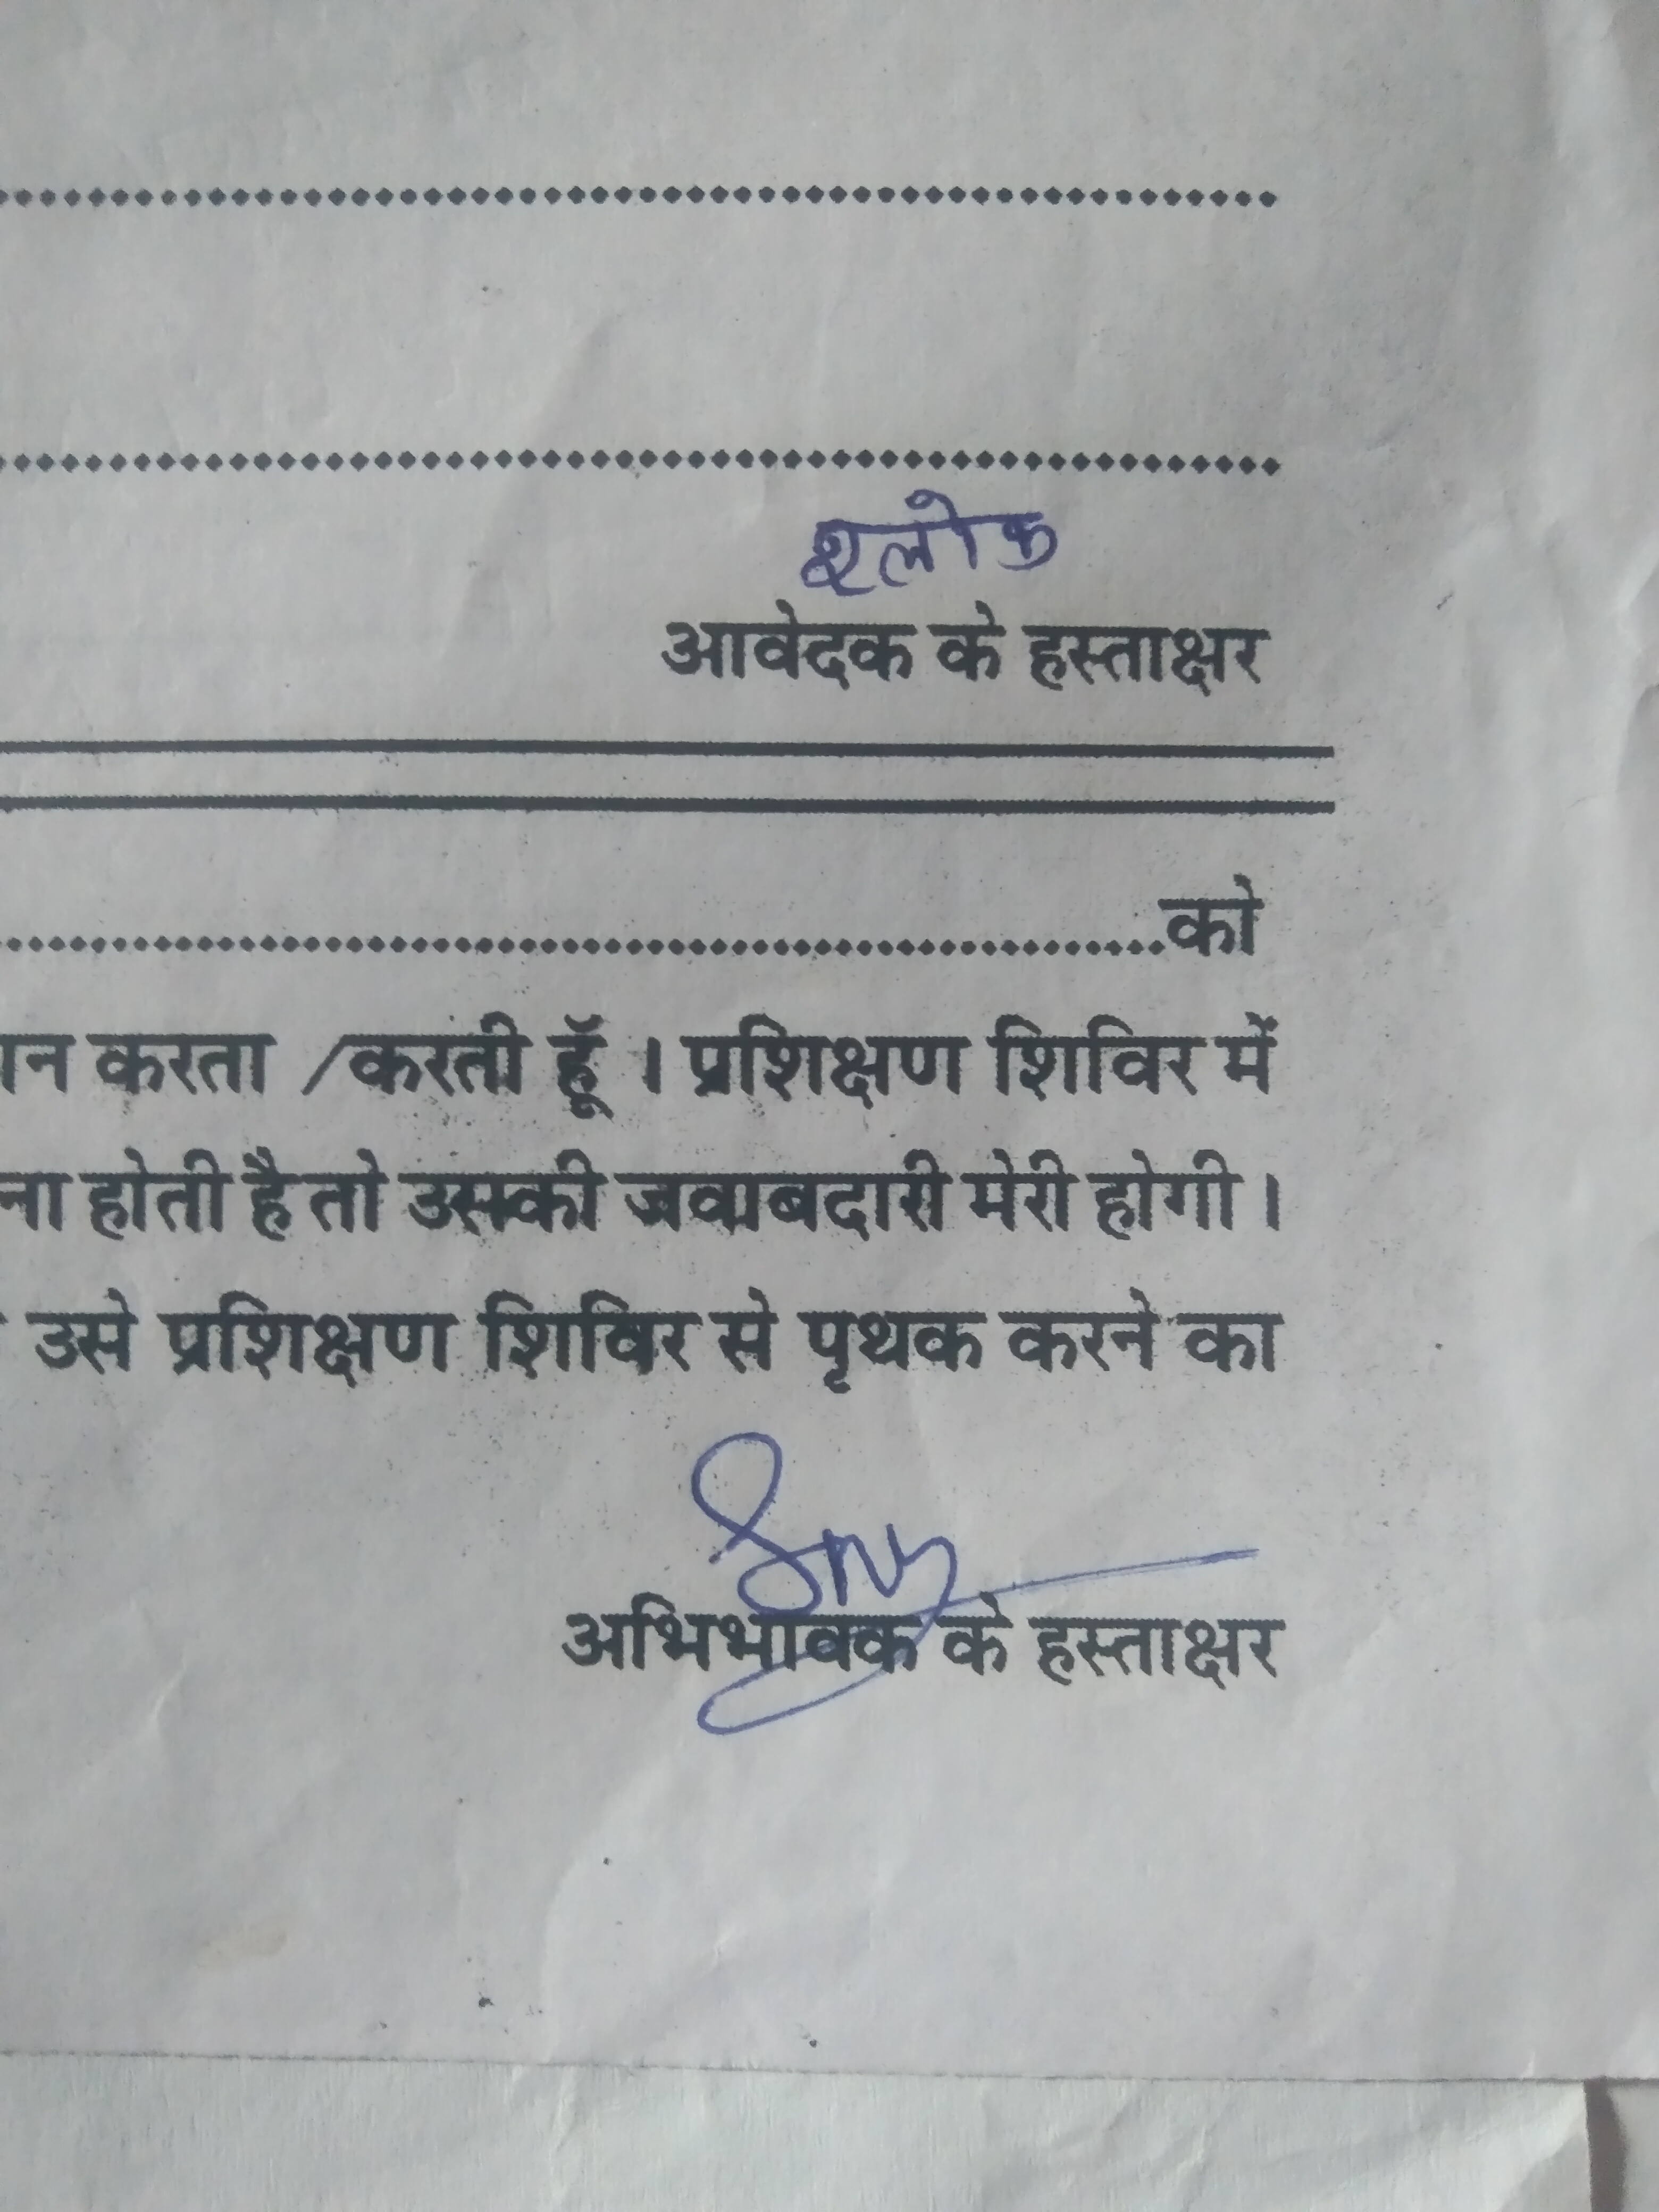 श्लोक
आवेदक के हस्ताक्षर
को
करता /करती हूॅं । प्रशिक्षण शिविर में
होती है तो उसकी जवाबदारी मेरी होगी ।
उसे प्रशिक्षण शिविर से पृथक करने का
अभिभावक के हस्ताक्षर